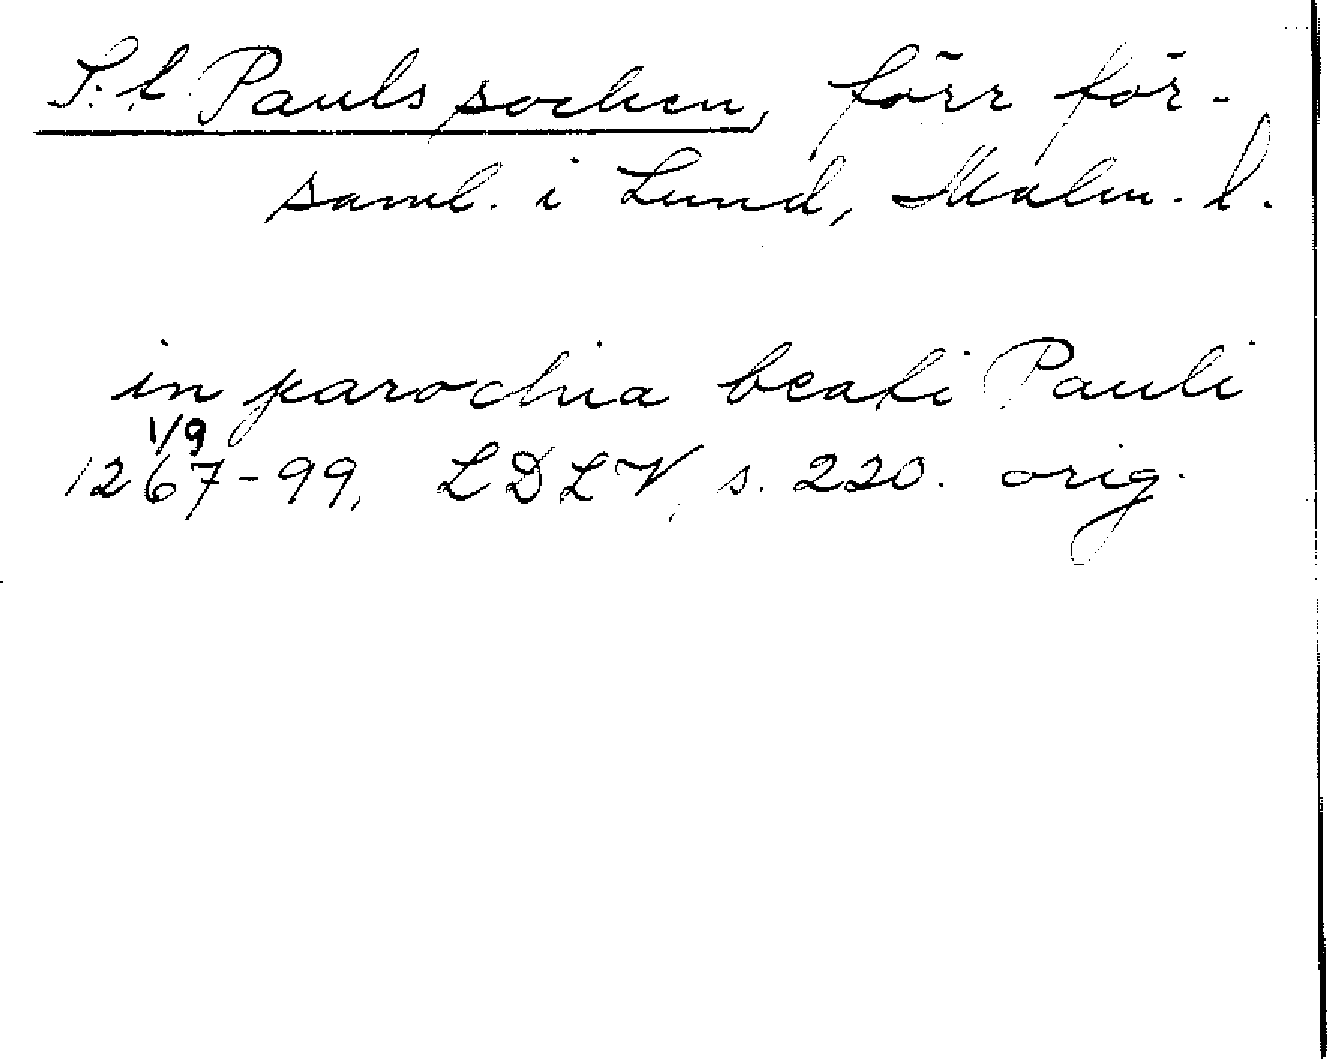 S:t Pauls socken, förr för-
saml. i Lund, Malm. l.
in parochia beati Pauli
1/9
1267-99, LDLV, s. 220. orig.